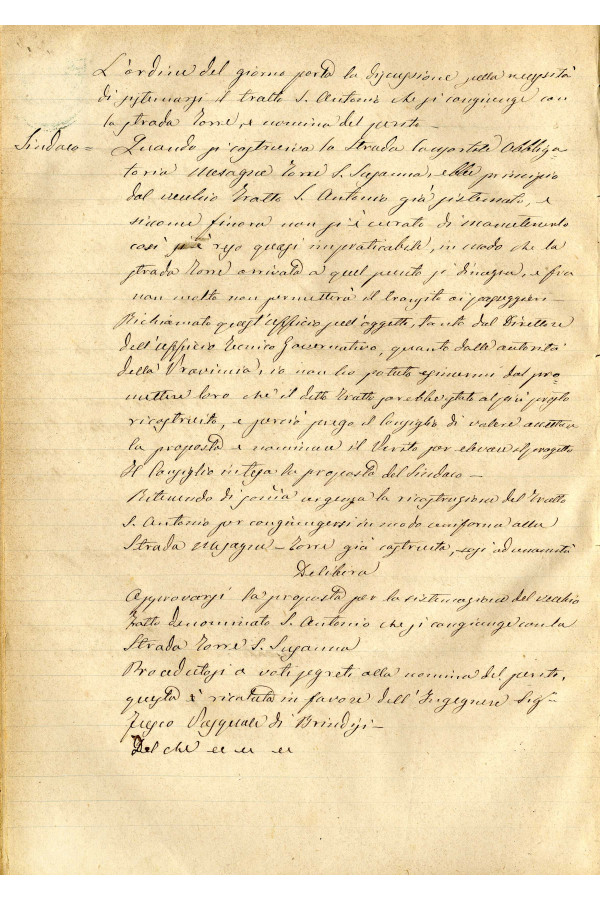 L'ordine del giorno porta la discussione sulla necessità
di sistemarsi il tratto S. Antonio che si congiunge con
la strada Torre, e nomina del perito_
Sindaco = Quando si costruiva la Strada Consortile Obbliga-
toria Mesagne Torre S. Susanna, ebbe principio
dal vecchio Tratto S. Antonio già sistemato, e
siccome finora non si è curato di manutenerlo
così si è reso quasi impraticabile, in modo che la
strada Torre arrivata a quel punto si disagia, e fra
non molto non permetterà il transito ai passeggieri_
Richiamato quest'ufficio sull'oggetto, tanto dal Direttore
dell'Ufficio Tecnico Governativo, quanto dalle autorità
della Provincia, io non ho potuto esimermi dal pro-
mettere loro che il detto Tratto sarebbe stato al più presto
ricostruito, e perciò prego il Consiglio di volere accettare
la proposta e nominare il Perito per elevare il progetto
Il Consiglio intesa la proposta del Sindaco_
Ritenendo di somma urgenza la ricostruzione del Tratto
S. Antonio per congiungersi in modo uniforme alla
Strada Mesagne_Torre già costruita, ad unanimità
Delibera
Approvarsi la proposta per la sistemazione del vecchio
Tratto denominato S. Antonio che si congiunge con la
Strada Torre S. Susanna
Procedutosi a voti segreti alla nomina del perito,
questa è ricaduta in favore dell'Ingegnere Sig.r
Pasquale di Brindisi_
Del che